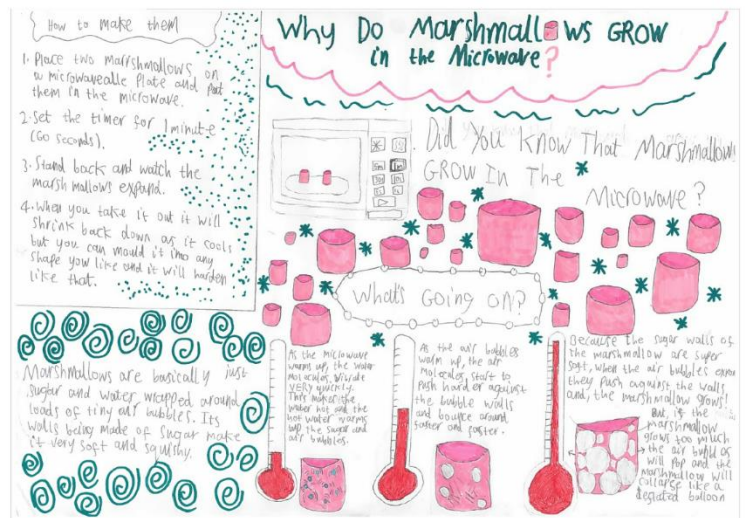 How to make them
1. Place two marshmallows on
a microwavealle plate and put
them in the microwave.
2. Set the timer for 1 minute
(60 seconds).
3. Stand back and watch the
marshmallows expand.
4. When you take it out it will
shrink back down as it cools
but you can mould it into any
shape you like and it will harden
like that.
Why Do Marshmallows GROW
in the Microwave?
Did You Know That Marshmallows
GROW In The
Microwave?
What's Going on?
Marshmallows are basically just
sugar and water wrapped around
loads of tiny air bubbles. Its
walls being made of sugar make
it very soft and squishy.
As the microwave
warms up, the water
molecules vibrate
VERY quickly.
This makes the
water hot and the
hot water warms
up the sugar and
air bubbles.
As the air bubbles
warm up, the air
molecules start to
push harder against
the bubble walls
and bounce around
faster and faster.
Because the sugar walls of
the marshmallow are super
soft, when the air bubbles
they push against the walls
and, the marshmallow grows!
But, if the
marshmallow
grows too much
the air bubbles
will pop and the
marshmallow will
collapse like a
deflated balloon